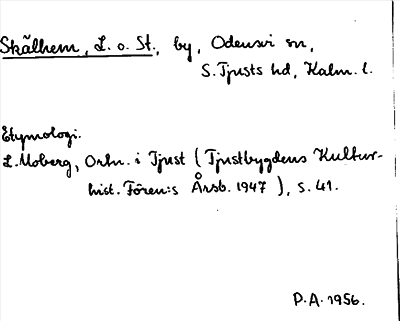 Skälhem, L. o. St., by, Odensvi sn,
S. Tjusts hd, Kalm. l.
Etymologi.
L. Moberg, Ortn. i Tjust (Tjustbygdens Kultur-
hist. Fören:s Årsb. 1947), s. 41.
P.A. 1956.